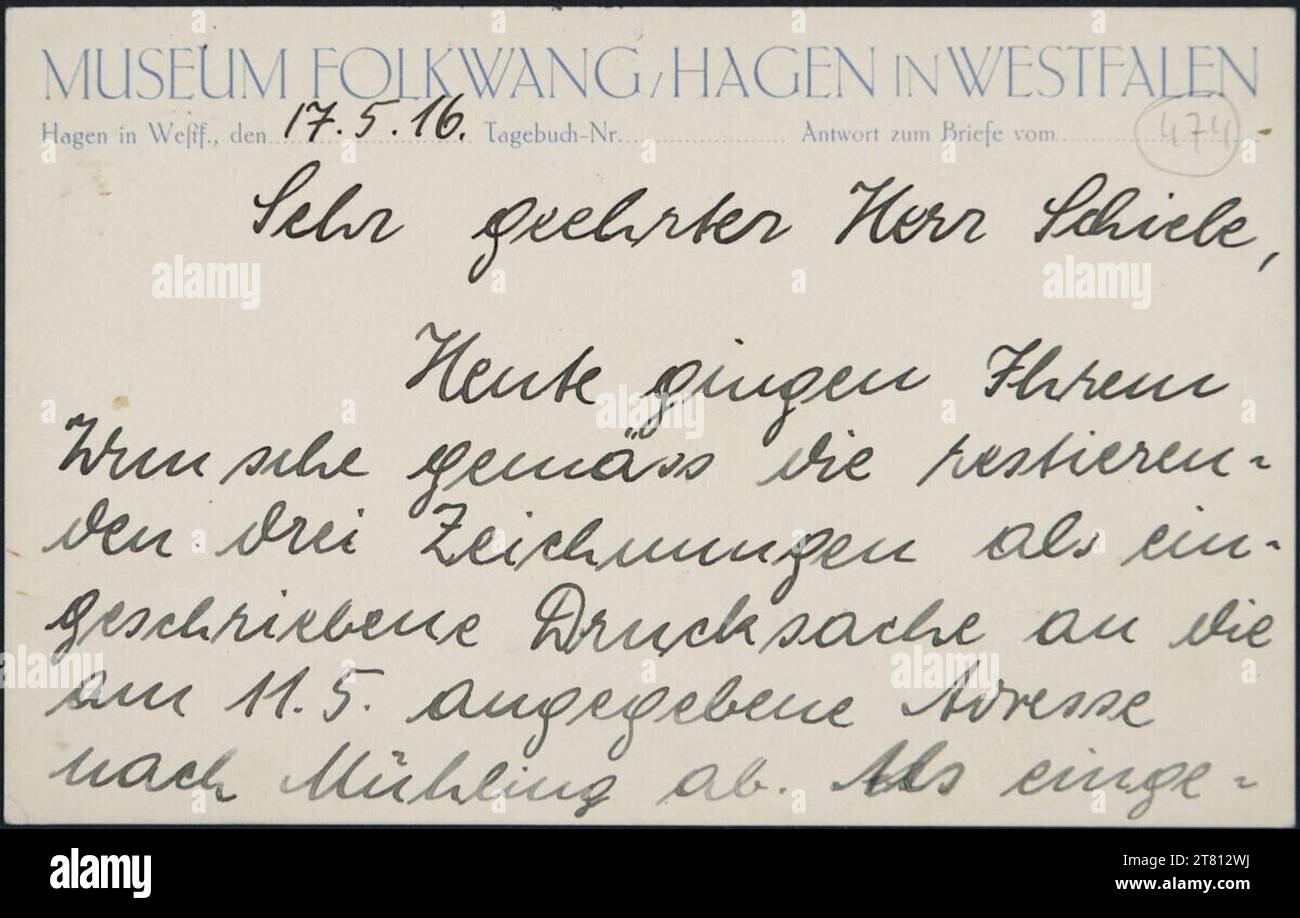 MUSEUM FOLKWANG / HAGEN IN WESTFALEN
Hagen in Westf., den 17.5.16. Tagebuch-Nr. Antwort zum Briefe vom 474
Sehr geehrter Herr Schiele,
Heute gingen Ihrem
Wunsche gemäss die restieren-
den drei Zeichnungen als ein-
geschriebene Drucksache an die
am 11.5. angegebene Adresse
nach Mühling ab. Als einge-
alamy
alamy
Image ID: 2T812WJ
www.alamy.com